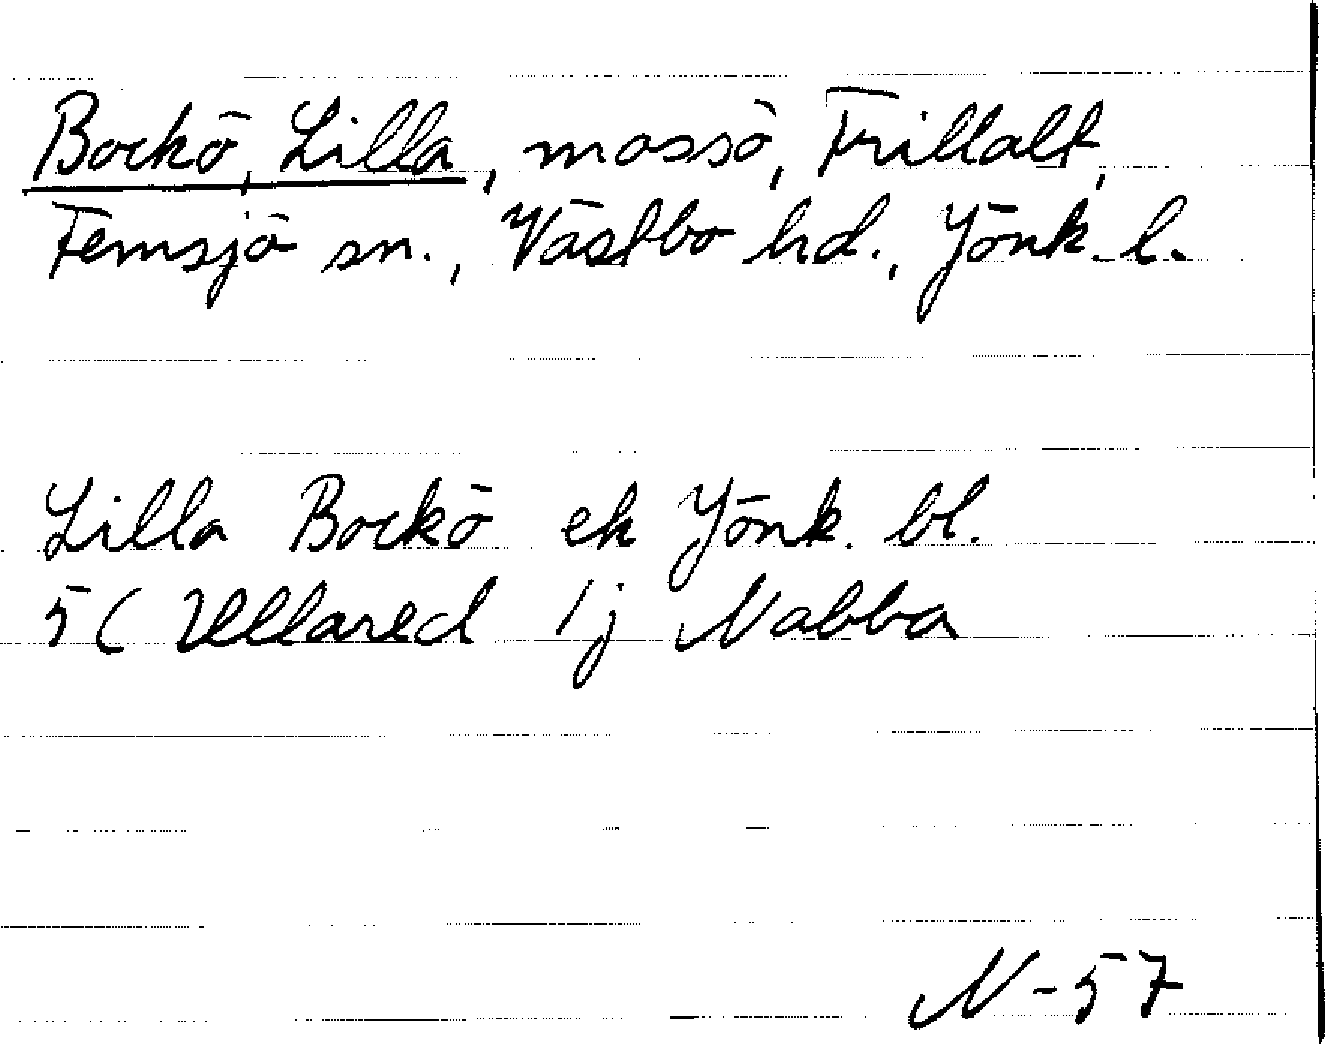 Bockö, Lilla, mossö, Frillalt,
Femsjö sn., Västbo hd., Jönk. l.
Lilla Bockö ek Jönk. bl.
5 ( Ullared 1j Nabba
N-57